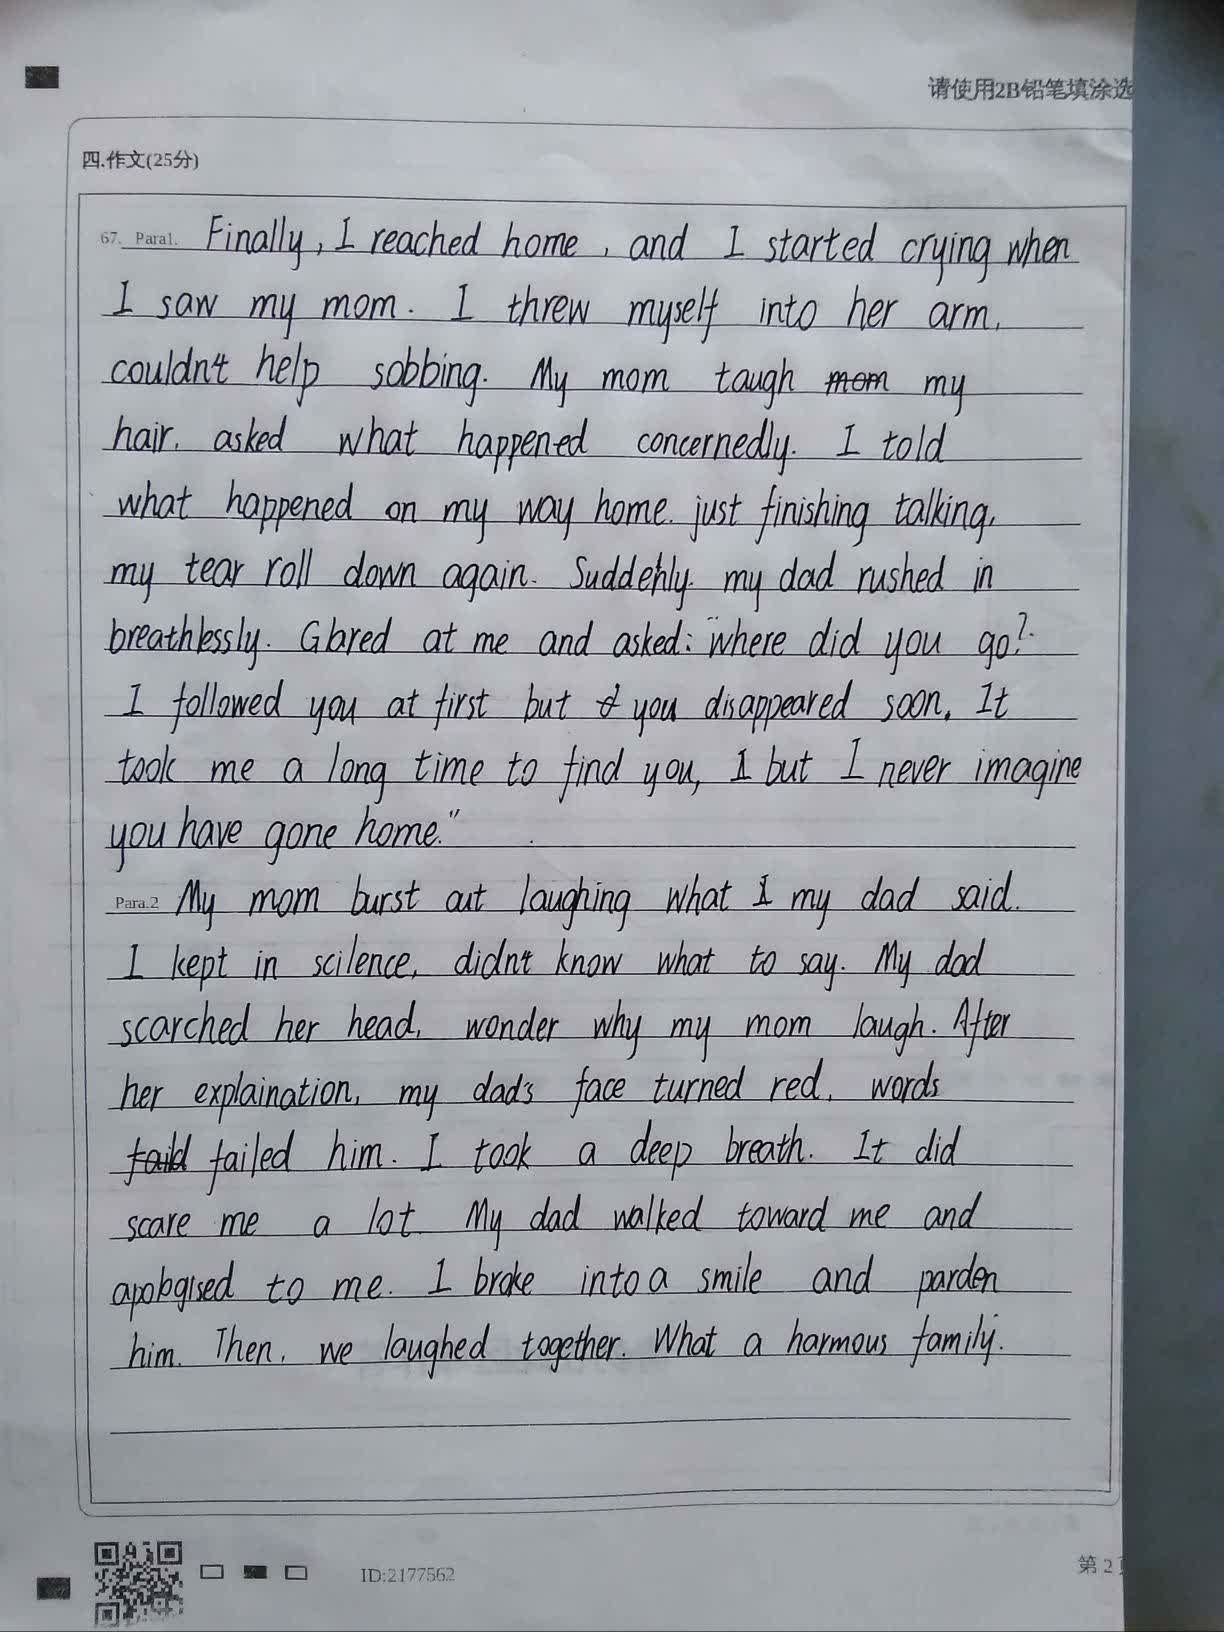 请使用2B铅笔填涂选
四.作文(25分)
67. Para1. Finally, I reached home, and I started crying when
I saw my mom. I threw myself into her arm,
couldn't help sobbing. My mom taugh mom my
hair, asked what happened concernedly. I told
what happened on my way home. just finishing talking,
my tear roll down again. Suddenly. my dad rushed in
breathlessly. Glared at me and asked: "where did you go?
I followed you at first but you disappeared soon. It
took me a long time to find you, but I never imagine
you have gone home."
Para.2 My mom burst out laughing what my dad said.
I kept in scilence, didn't know what to say. My dad
scarched her head, wonder why my mom laugh. After
her explaination, my dad's face turned red, words
faild failed him. I took a deep breath. It did
scare me a lot. My dad walked toward me and
apologised to me. I broke into a smile and parden
him. Then, we laughed together. What a harmous family.
ID:2177562
第2